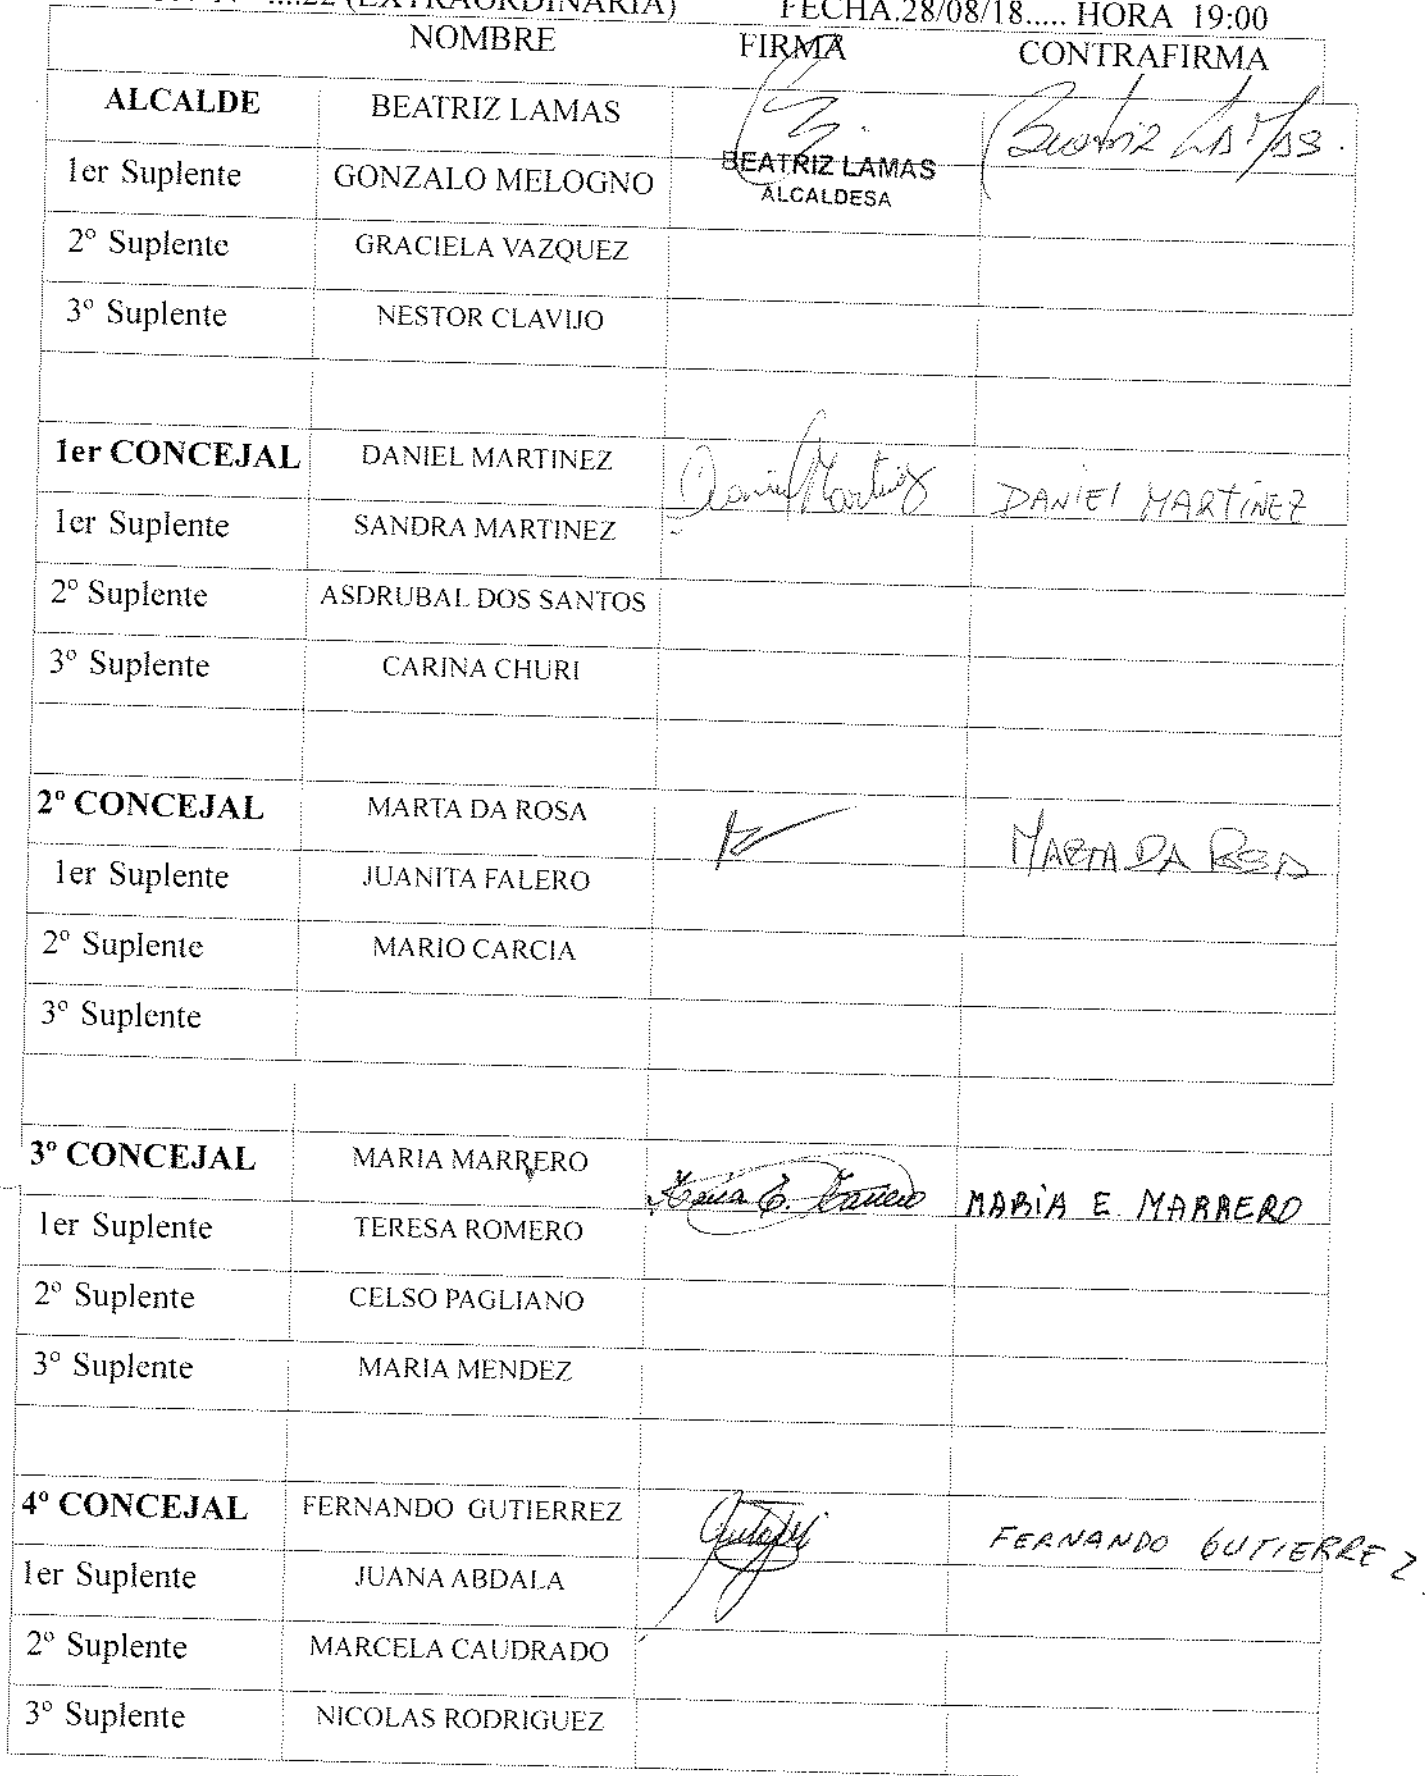 Nº ....22 (EXTRAORDINARIA) FECHA.28/08/18..... HORA 19:00
NOMBRE FIRMA CONTRAFIRMA
ALCALDE BEATRIZ LAMAS Beatriz LAMAS.
BEATRIZ LAMAS
1er Suplente GONZALO MELOGNO
ALCALDESA
2º Suplente GRACIELA VAZQUEZ
3º Suplente NESTOR CLAVIJO
1er CONCEJAL DANIEL MARTINEZ Daniel Martinez DANIEL MARTÍNEZ
1er Suplente SANDRA MARTINEZ
2º Suplente ASDRUBAL DOS SANTOS
3º Suplente CARINA CHURI
2º CONCEJAL MARTA DA ROSA MARTA DA ROSA
1er Suplente JUANITA FALERO
2º Suplente MARIO CARCIA
3º Suplente
3º CONCEJAL MARIA MARRERO María E. Marrero MARÍA E. MARRERO
1er Suplente TERESA ROMERO
2º Suplente CELSO PAGLIANO
3º Suplente MARIA MENDEZ
4º CONCEJAL FERNANDO GUTIERREZ FERNANDO GUTIERREZ.
1er Suplente JUANA ABDALA
2º Suplente MARCELA CAUDRADO
3º Suplente NICOLAS RODRIGUEZ